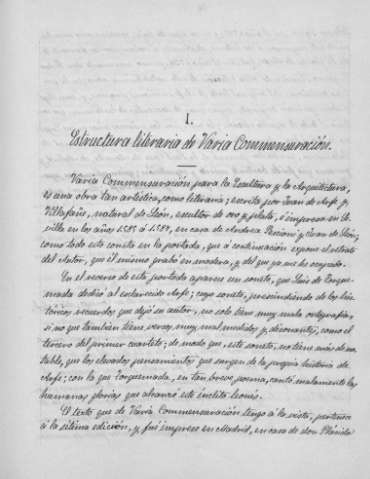 I.
Estructura literaria de Varia Commensuración.
Varia Commensuración para la Escultura y la Arquitectura,
es una obra tan artística, como literaria; escrita por Juan de Arfe y
Villafañe, natural de León, escultor de oro y plata, é impresa en Se-
villa en los años 1585 á 1587, en casa de Andrea Pescioni y Juan de León;
como todo esto consta en la portada, que á continuación expone el retrato
del Autor, que él mismo grabó en madera, y del que ya me he ocupado.
En el reverso de esta portada aparece un soneto, que Luis de Torque-
mada dedicó al esclarecido Arfe; cuyo soneto, prescindiendo de los his-
tóricos recuerdos que dejó su autor, no solo tiene muy mala ortografía,
si no que tambien tiene versos, muy mal medidos y disonantes, como el
tercero del primer cuarteto; de modo que, este soneto, no tiene más de no-
table, que los elevados pensamientos que surgen de la propia historia de
Arfe; con la que Torquemada, en tan breve poema, cantó malamente las
humanas glorias que alcanzó este ínclito leonés.
El texto que de Varia Commensuración tengo á la vista, pertenece
á la última edición, y fué impreso en Madrid, en casa de don Plácido